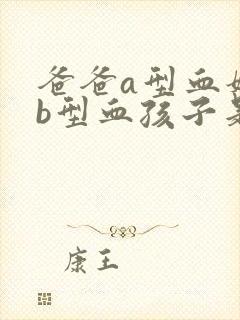 爸爸a型血
b型血孩子
康王